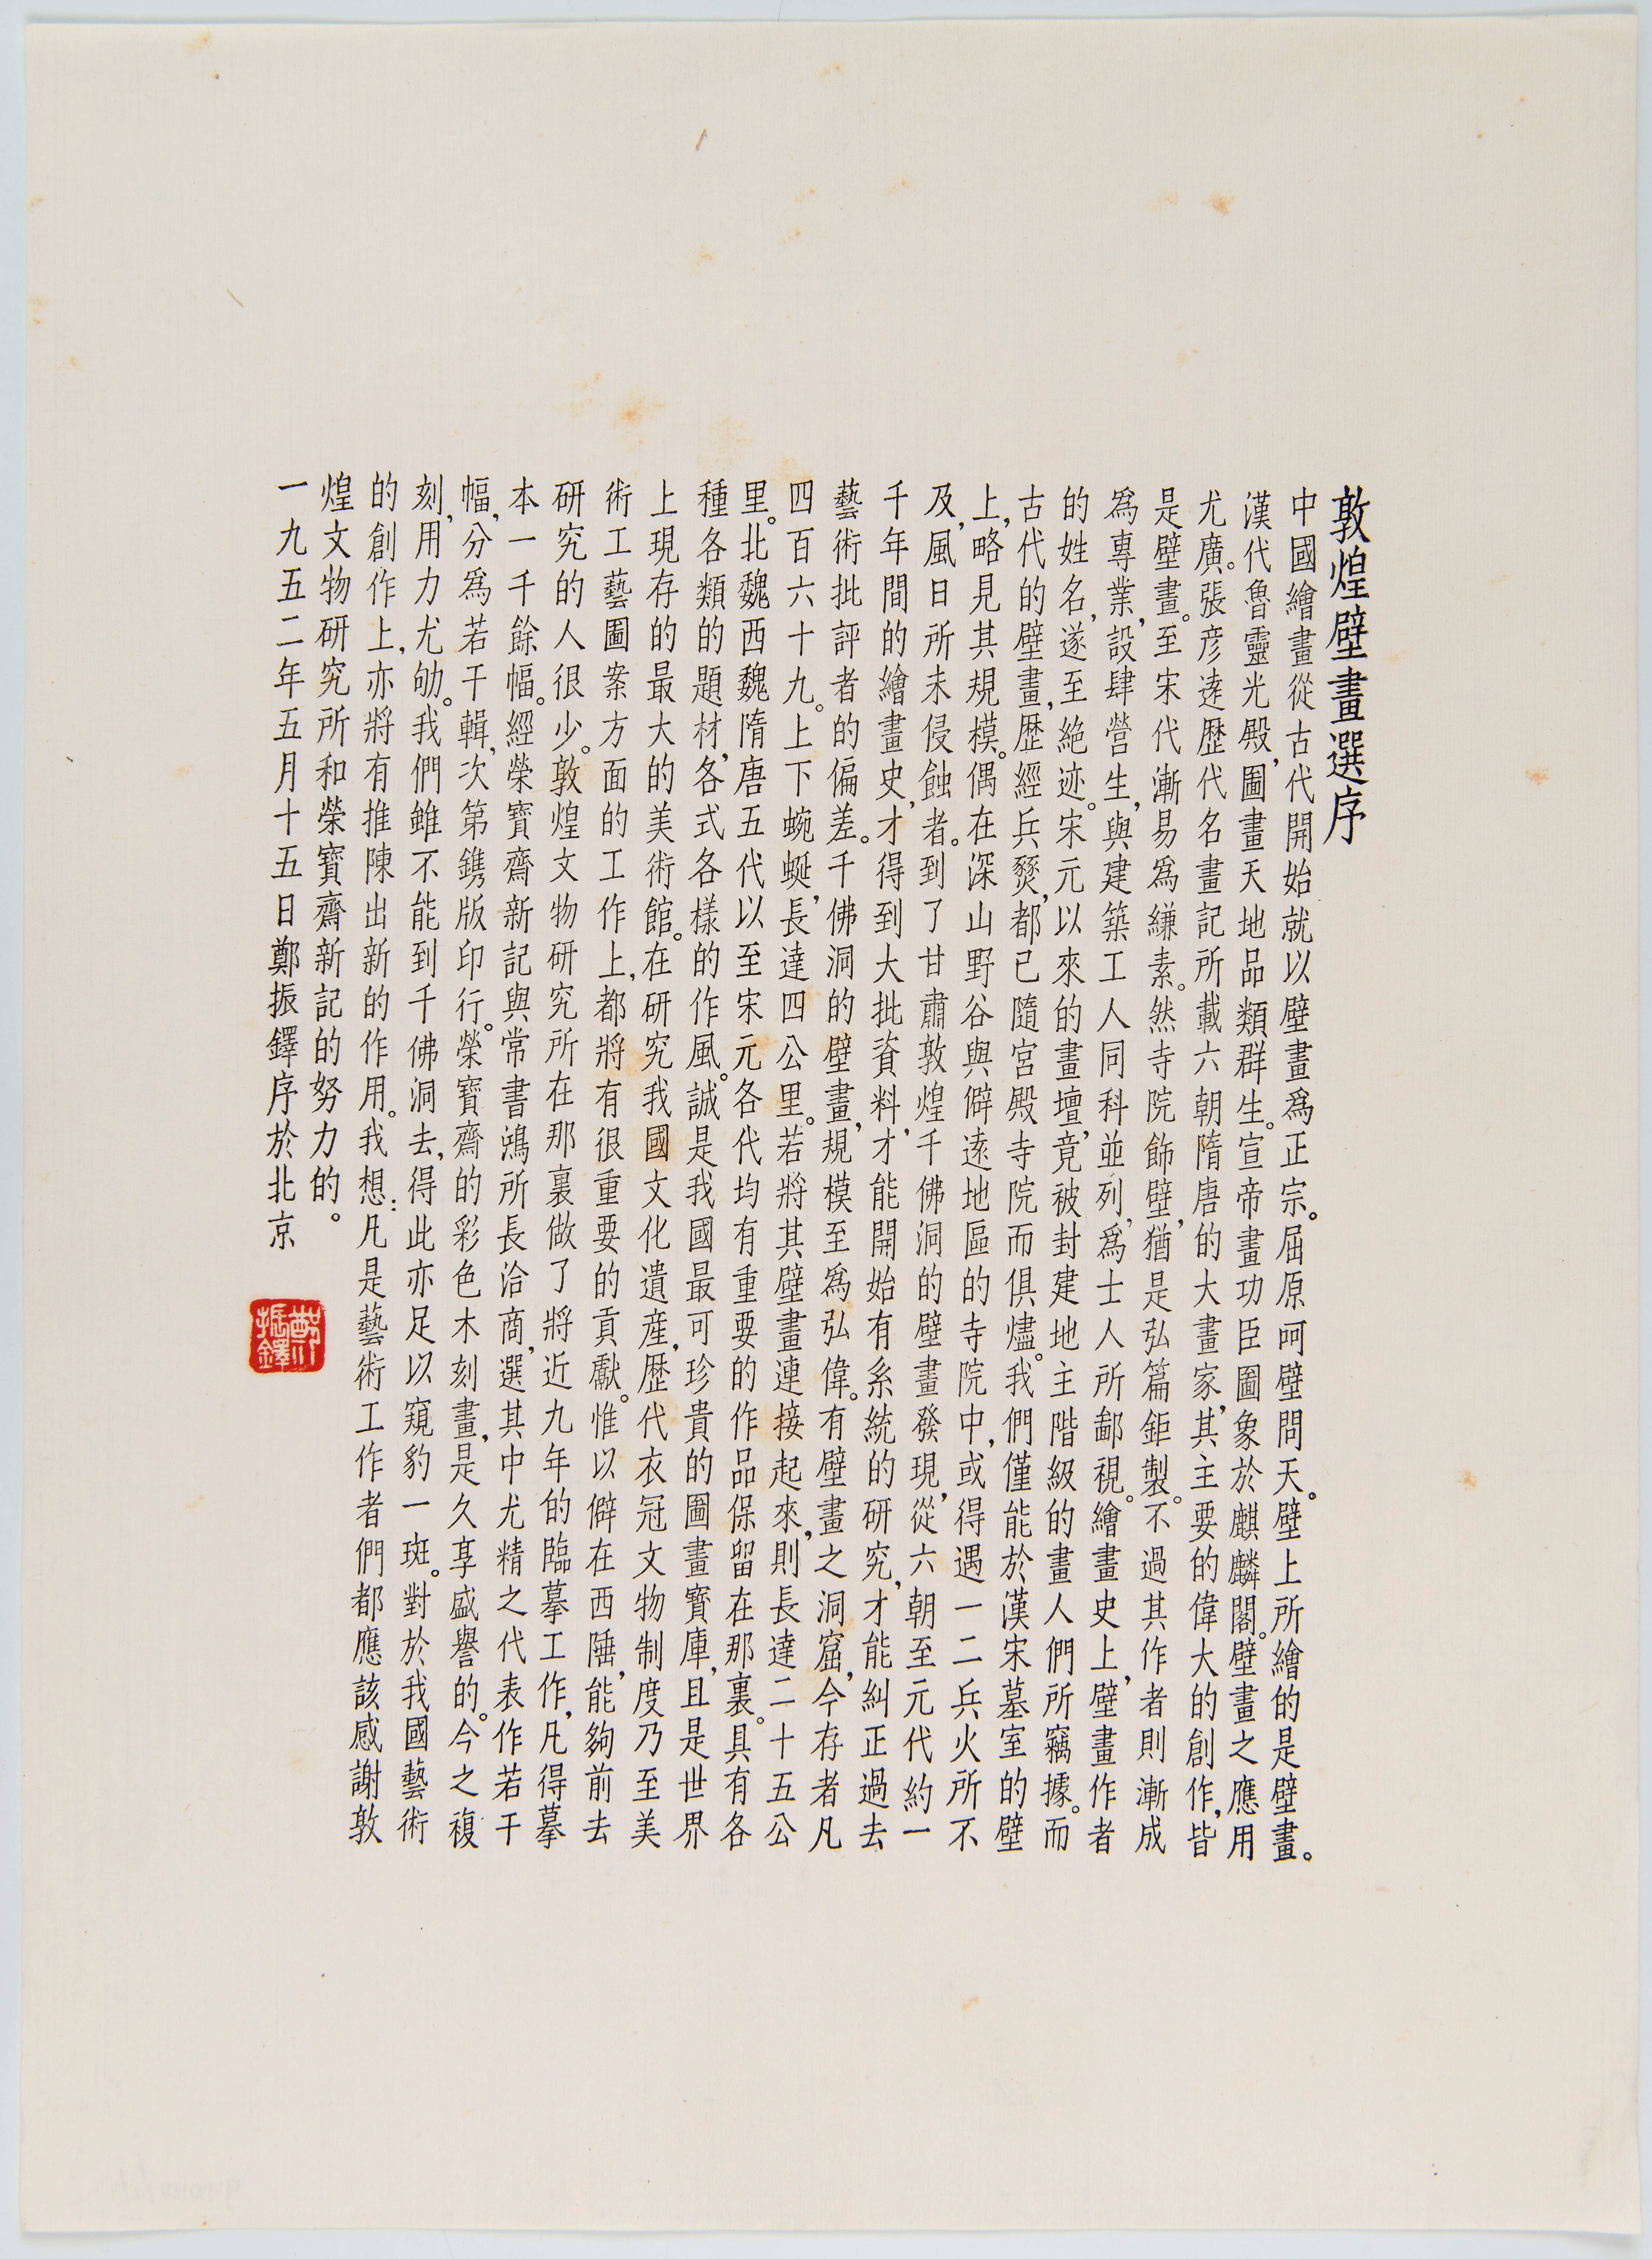 敦煌壁畫選序
中國繪畫從古代開始就以壁畫爲正宗。屈原呵壁問天。壁上所繪的是壁畫。
漢代魯靈光殿，圖畫天地品類群生。宣帝畫功臣圖象於麒麟閣。壁畫之應用
尤廣。張彥遠歷代名畫記所載六朝隋唐的大畫家，其主要的偉大的創作，皆
是壁畫。至宋代漸易爲縑素。然寺院飾壁，猶是弘篇鉅製。不過其作者則漸成
爲專業，設肆營生，與建築工人同科並列，爲士人所鄙視。繪畫史上，壁畫作者
的姓名，遂至絕迹。宋元以來的畫壇，竟被封建地主階級的畫人們所竊據。而
古代的壁畫，歷經兵燹，都已隨宮殿寺院而俱燼。我們僅能於漢宋墓室的壁
上，略見其規模。偶在深山野谷與僻遠地區的寺院中，或得遇一二兵火所不
及，風日所未侵蝕者。到了甘肅敦煌千佛洞的壁畫發現，從六朝至元代約一
千年間的繪畫史，才得到大批資料，才能開始有系統的研究，才能糾正過去
藝術批評者的偏差。千佛洞的壁畫，規模至爲弘偉。有壁畫之洞窟，今存者凡
四百六十九。上下蜿蜒，長達四公里。若將其壁畫連接起來，則長達二十五公
里。北魏西魏隋唐五代以至宋元各代均有重要的作品保留在那裏。具有各
種各類的題材，各式各樣的作風。誠是我國最可珍貴的圖畫寶庫，且是世界
上現存的最大的美術館。在研究我國文化遺產，歷代衣冠文物制度乃至美
術工藝圖案方面的工作上，都將有很重要的貢獻。惟以僻在西陲，能夠前去
研究的人很少。敦煌文物研究所在那裏做了將近九年的臨摹工作，凡得摹
本一千餘幅。經榮寶齋新記與常書鴻所長洽商，選其中尤精之代表作若干
幅，分爲若干輯，次第鐫版印行。榮寶齋的彩色木刻畫，是久享盛譽的。今之複
刻，用力尤劬。我們雖不能到千佛洞去，得此亦足以窺豹一斑。對於我國藝術
的創作上，亦將有推陳出新的作用。我想：凡是藝術工作者們都應該感謝敦
煌文物研究所和榮寶齋新記的努力的。
一九五二年五月十五日鄭振鐸序於北京
鄭振鐸